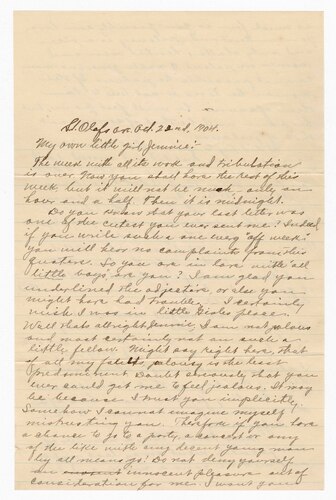 St. Olaf Ave Oct. 22nd, 1904.
My own little girl Jennie:
The week with all its work and tribulation
is over. Now you shall have the rest of this
week but it will not be much only an
hour and a half. Then it is midnight.
Do you know that your last letter was
one of the cutest you ever sent me? Indeed
if you write such a one every "off week"
you will hear no complaints from this
quarter. So you are in love with "all
little boys" are you? I am glad you
underlined the adjective or else you
might have had trouble. I certainly
wish I was in little place.
Well that's allright Jennie, I am not jealous
and most certainly not on such a
little fellow. Might say right here, that
of all my faults, jealousy is the least
predominent. Doubt seriously that you
ever could get me to feel jealous. It may
be because I trust you implicitly.
Somehow I cannot imagine myself
mistrusting you. Therefore if you have
a chance to go to a party, a concert or any
of the like with any decent young man
by all means go. Do not deny yourself
an innocent pleasure out of
consideration for me. I want you